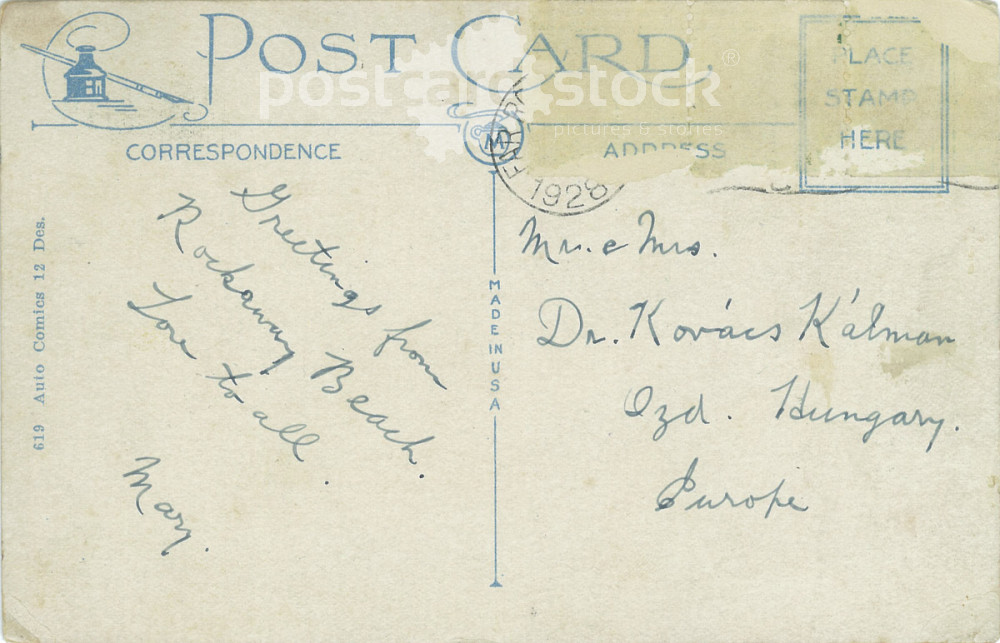 POST CARD.
postcardstock®
pictures & stories
PLACE
STAMP
HERE
CORRESPONDENCE
ADDRESS
M
FAR
1928
Greetings from
Rockaway Beach.
Love to all.
Mary.
Mr. & Mrs.
Dr. Kovács Kálmán
Ozd. Hungary.
Europe
MADE IN USA
619 Auto Comics 12 Des.